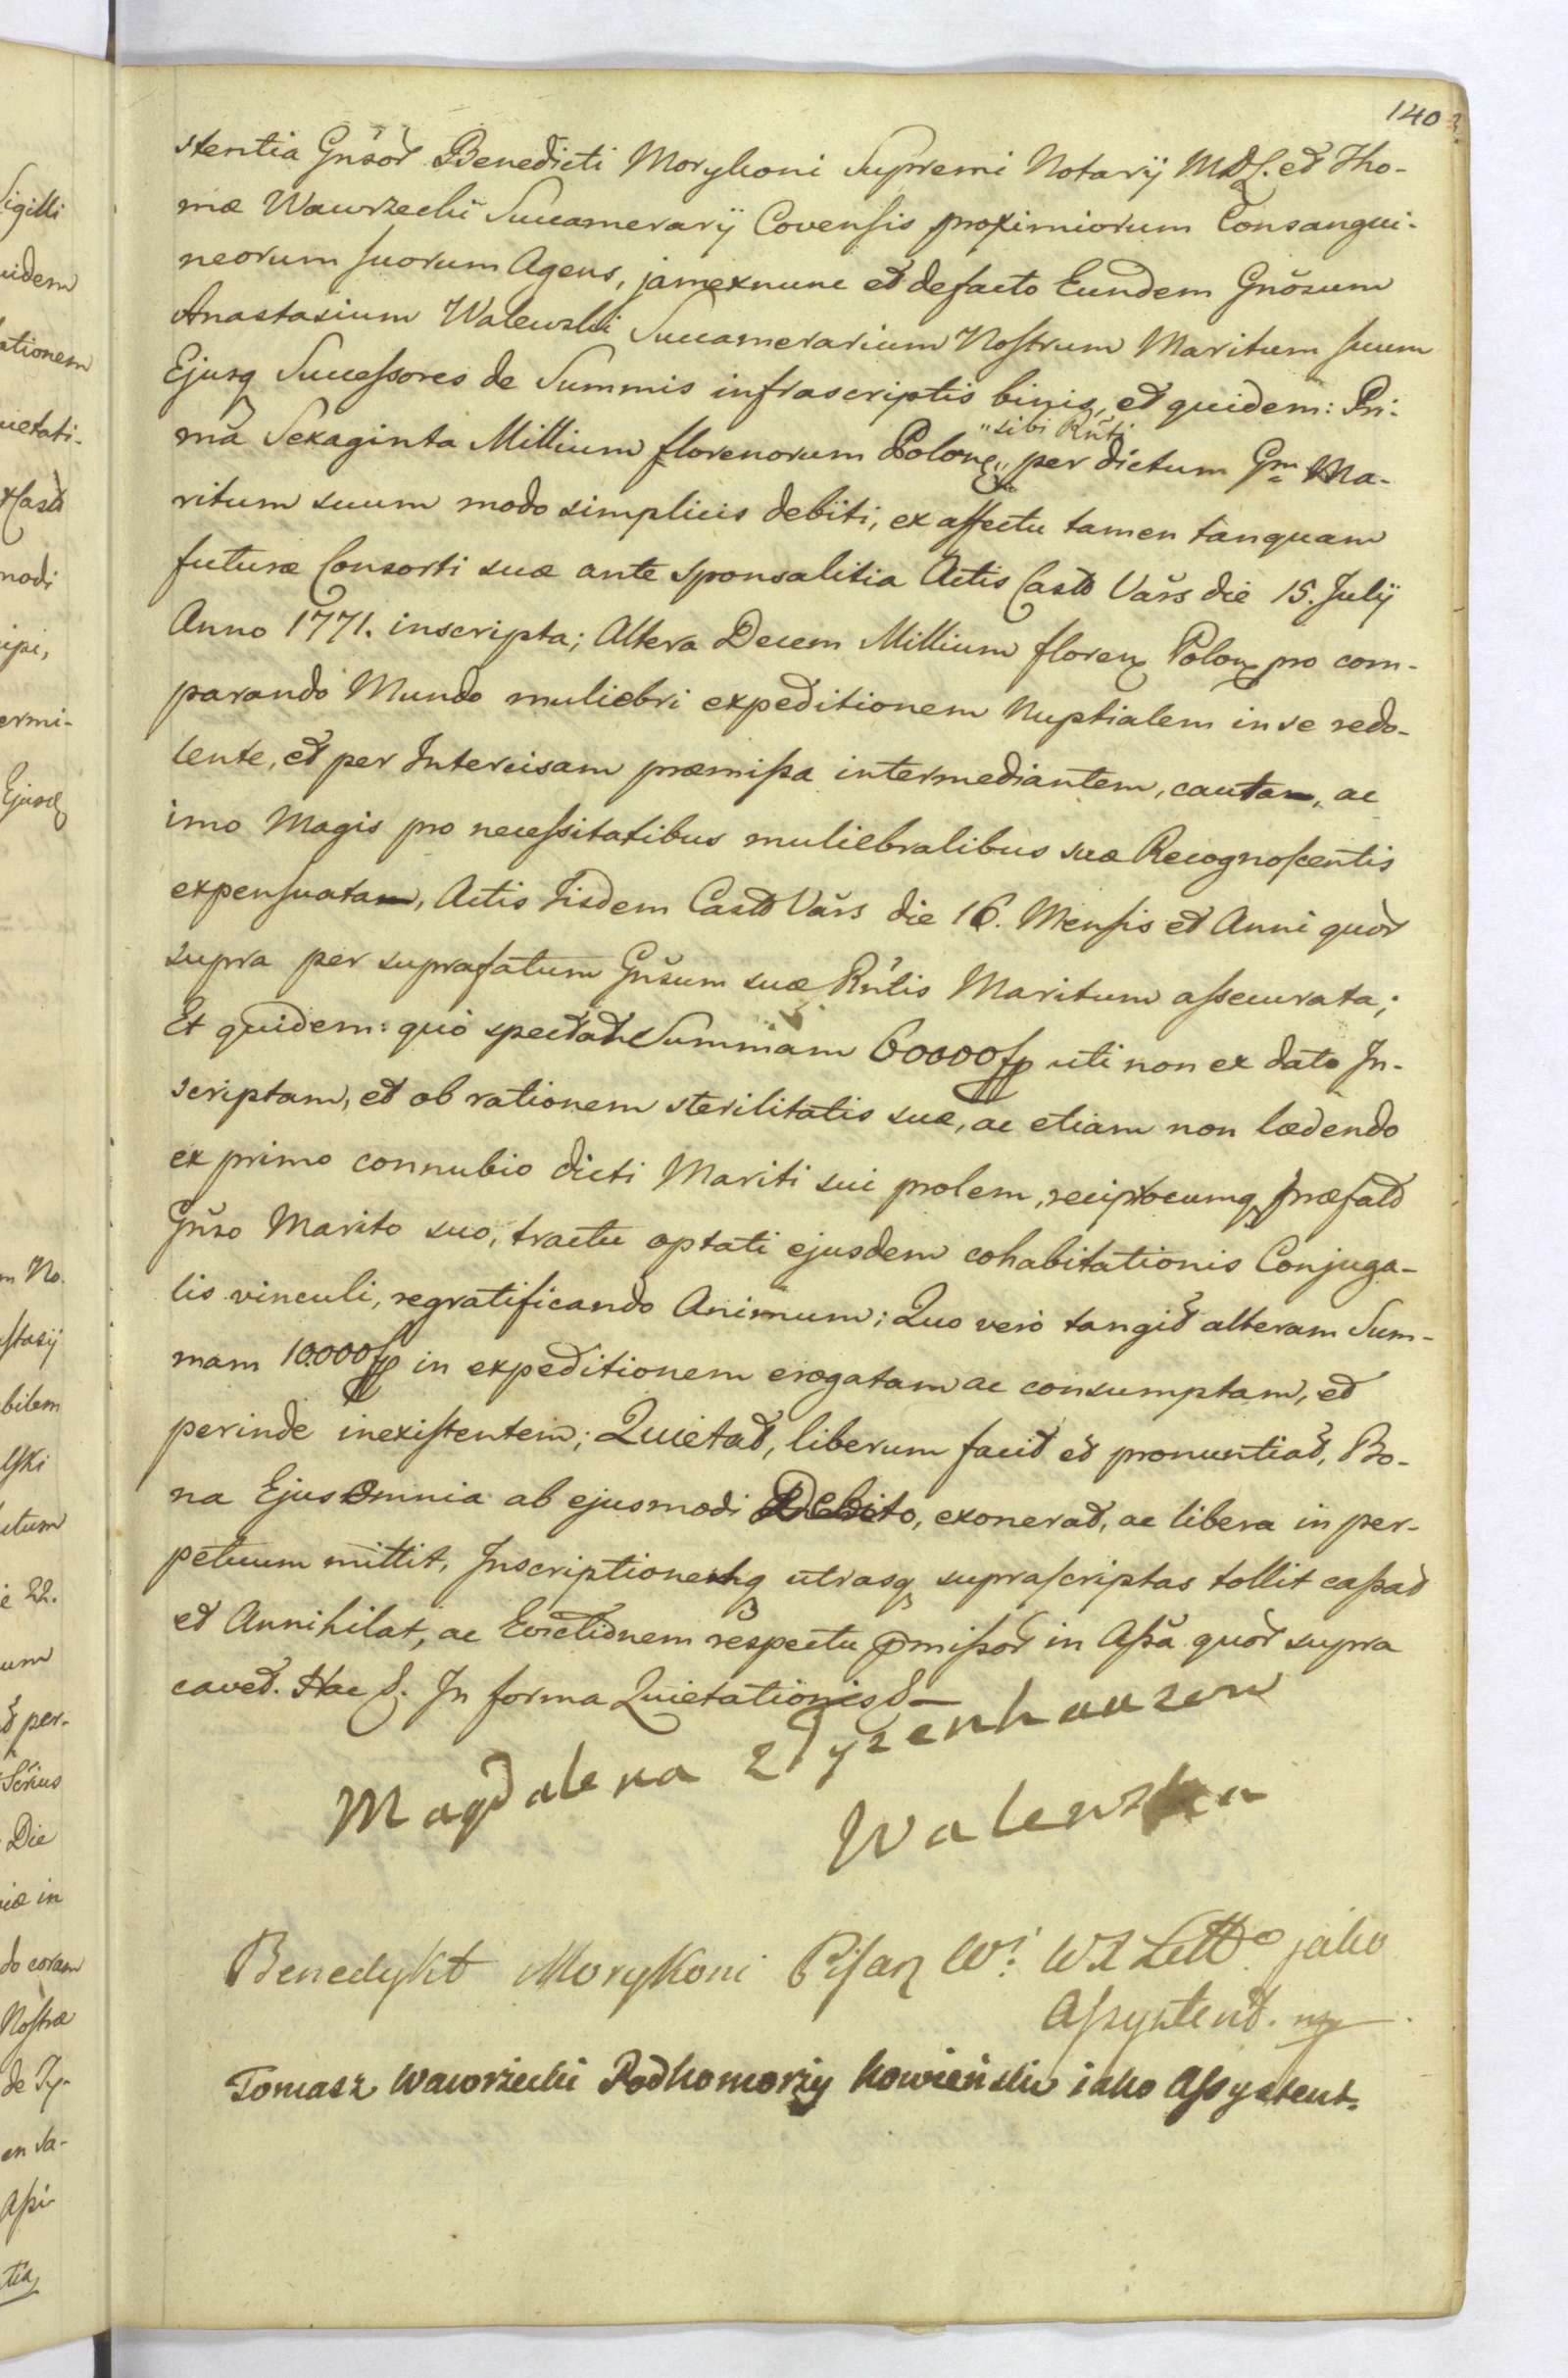 140
stentia Gnsor Benedicti Morykoni Supremi Notarij MDL. et Tho-
mæ Wawrzecki Succamerarij Covensis proximiorum Consangui-
neorum suorum Agens, jam ex nunc et defacto Eundem Gnosum
Anastasium Walewski Succamerarium Nostrum Maritum suum
Ejusq Successores de Summis infrascriptis binis, et quidem: Pri-
ma Sexaginta Millium florenorum Polon "sibi Rnti" per dictum Gm Ma-
ritum suum modo simplicis debiti, ex affectu tamen tanquam
futuræ Consorti suæ ante sponsalitia Actis Castr Vars die 15. Julij
Anno 1771. inscripta; Altera Decem Millium floren Polon pro com-
parando Mundo muliebri expeditionem Nuptialem in se redo-
lente, et per Intercisam præmissa intermediantem, cauta, ac
imo Magis pro necessitatibus muliebralibus suæ Recognoscentis
expensuata, Actis Iisdem Castr Vars die 16. Mensis et Anni quor
supra per suprafatum Gnsum suæ Rntis Maritum assecurata;
Et quidem: quò spectat Summam 60000 fp uti non ex dato In-
scriptam, et ob rationem sterilitatis suæ, ac etiam non lædendo
ex primo connubio dicti Mariti sui prolem, reciprocumq præfato
Gnso Marito suo, tractu optati ejusdem cohabitationis Conjuga-
lis vinculi, regratificando Animum; Quo verò tangit alteram Sum-
mam 10.000 fp in expeditionem erogatam ac consumptam, et
perinde inexistentem; Quietat, liberum facit et pronuntiat, Bo-
na Ejus Omnia ab ejusmodi Debito, exonerat, ac libera in per-
petuum mittit, Inscriptionesq utrasq suprascriptas tollit cassat
et Annihilat, ac Evictionem respectu pmissor in Assa quor supra
cavet. Hac S. In forma Quietationis S
Magdalena z Tyzenhauzow
Walewska
Benedykt Morykoni Pisarz W. W X Litt jako
Assystent. mp
Tomasz Wawrzecki Podkomorzy Kowienski iako Assystent.
Sigilli
uidem
ationem
uietati-
Cast
modi
ipi,
ermi-
Ejusd
m No.
stasij
bilem
lski
utum
e 22.
um
per-
Die
iæ in
do coram
Nostræ
de Ty-
en Sa-
Assi-
tia